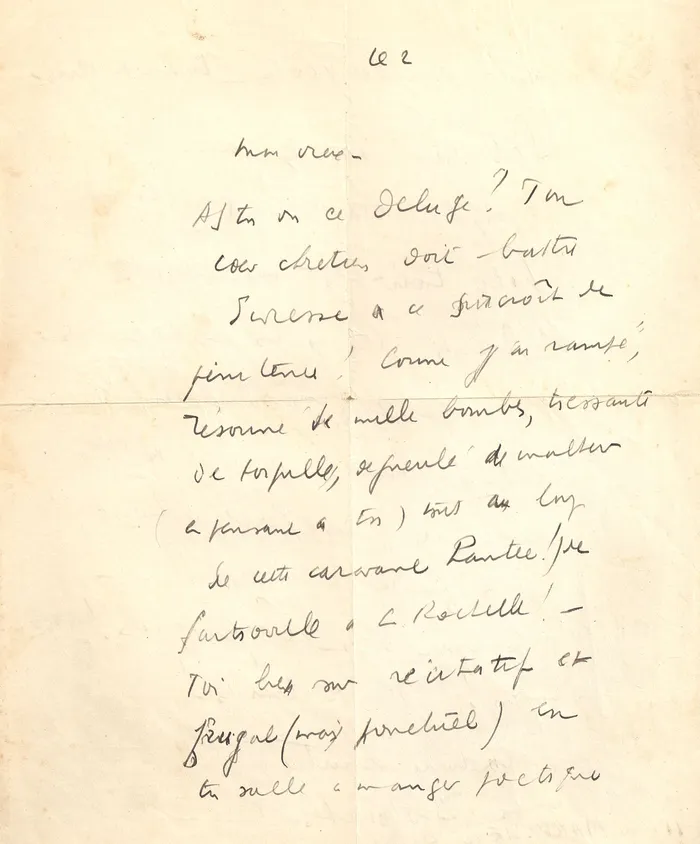 Le 2
Mon vieux -
As tu vu ce Déluge! Ton
coeur chrétien doit battre
d'ivresse à ce surcroît de
pénitence! Comme j'ai rampé,
résonné de mille bombes, tressauté
de torpilles, dégueulé de malheur
(en pensant à toi) tout au long
de cette caravane ! de
à La Rochelle! -
Toi bien sur récitatif et
frugal (mais ponctuel) en
ta salle à manger poétique